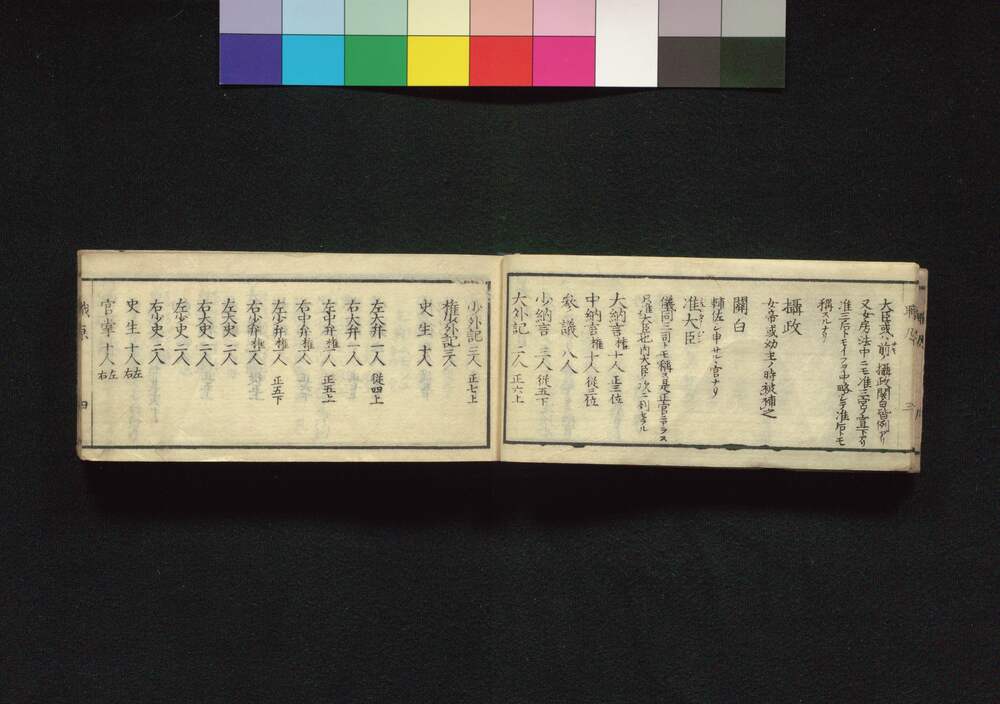 大臣或ハ前ノ攝政関白皆例アリ
又女房法中ニモ准三宮ノ宣下アリ
准三后トモイフヲ中略シテ准后トモ
稱スルナリ
攝政
女帝或幼主ノ時被補之
關白
輔佐シ申サルヽ官ナリ
准大臣
儀同三司トモ稱ス是正官ニアラス
只准大臣也内大臣ノ次ニ列セラル
大納言 権 十人 正三位
中納言 権 十人 從三位
参議 八人
少納言 三人 從五下
大外記 二人 正六上
少外記 二人 正七上
権外記 三人
史生 十人
左大弁 一人 從四上
右大弁 一人
左中弁 権 一人 正五上
右中弁 権 一人
左少弁 権 一人 正五下
右少弁 権 一人
左大史 二人
右大史 二人
左少史 二人
右少史 二人
史生 十人 左右
官掌 十人 左右
四